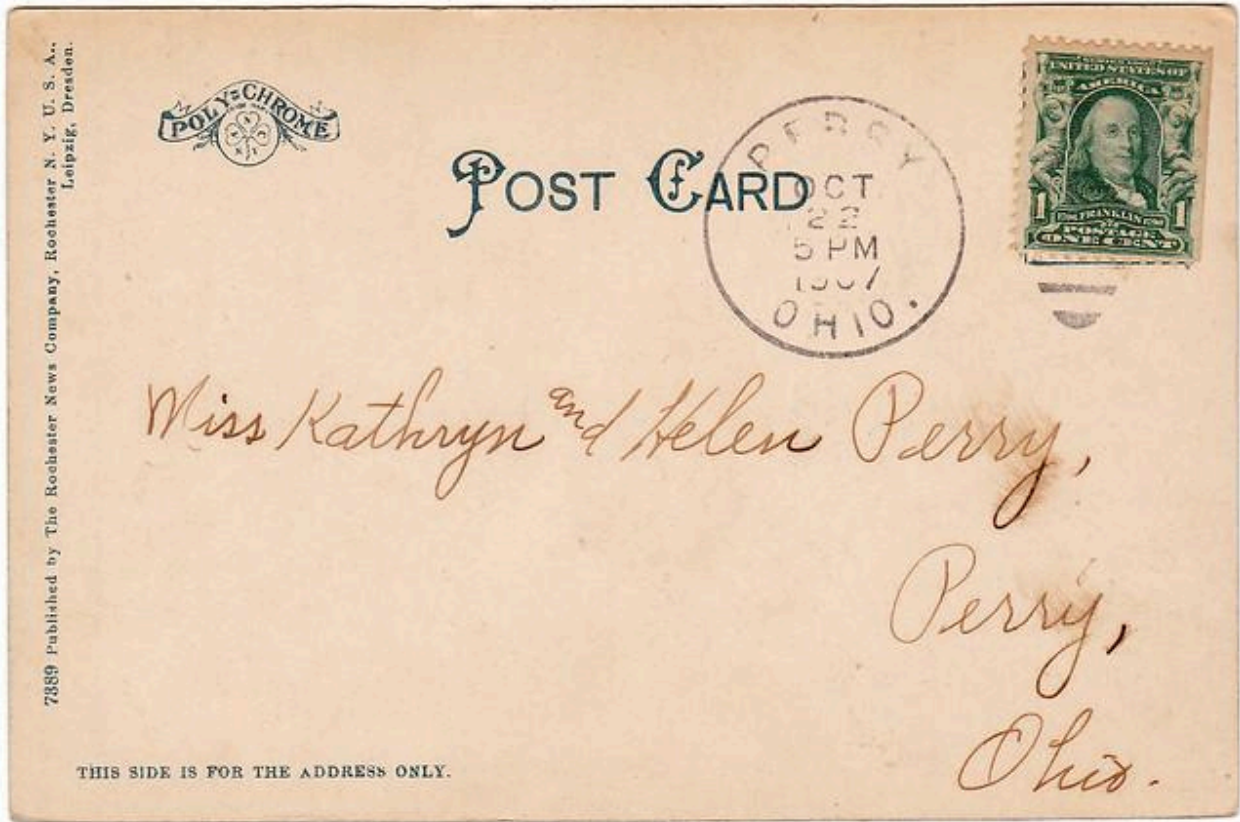 7389 Published by The Rochester News Company, Rochester N. Y. U. S. A.,
Leipzig, Dresden.
POLY=CHROME
POST CARD
PERRY
OCT
22
5 PM
1907
OHIO.
UNITED STATES OF
AMERICA
1 FRANKLIN 1
POSTAGE
ONE CENT
Miss Kathryn and Helen Perry,
Perry,
Ohio.
THIS SIDE IS FOR THE ADDRESS ONLY.